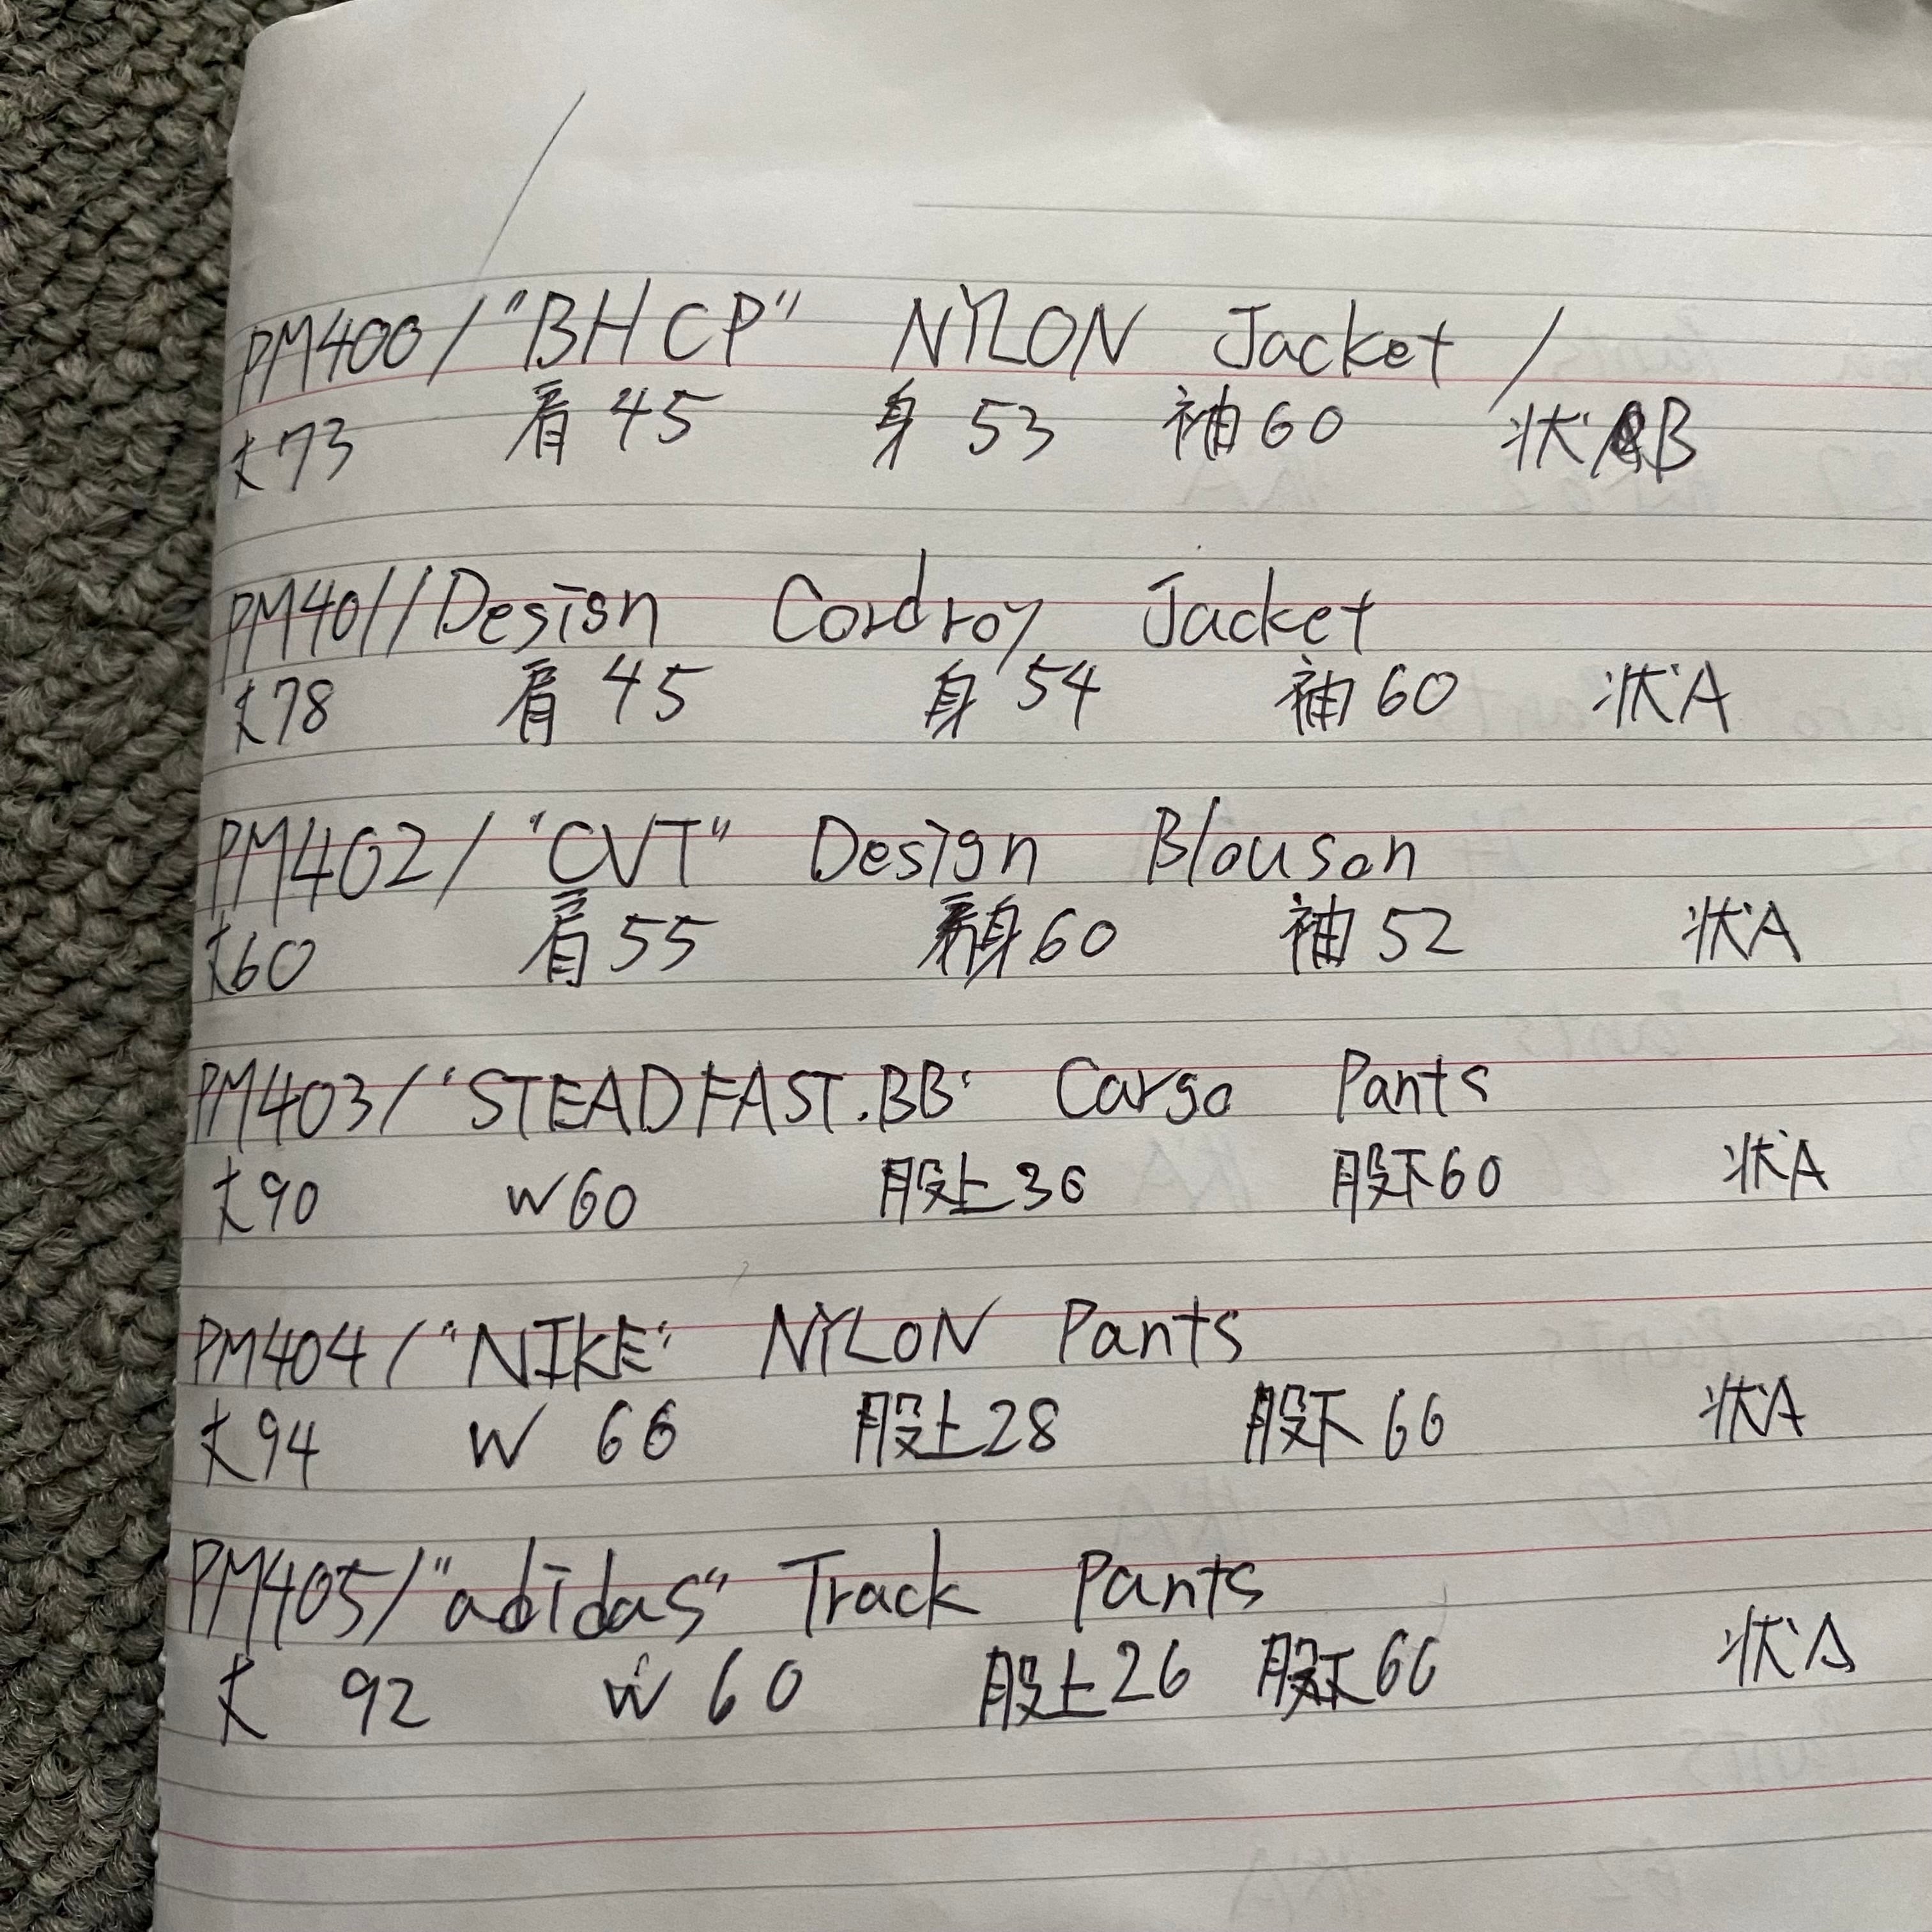 PM400/"BHCP" NYLON Jacket/
丈73 肩45 身53 袖60 状B
PM401/Design Cordroy Jacket
丈78 肩45 身54 袖60 状A
PM402/"CVT" Design Blouson
丈60 肩55 身60 袖52 状A
PM403/"STEADFAST.BB" Cargo Pants
丈90 W60 股上36 股下60 状A
PM404/"NIKE" NYLON Pants
丈94 W 66 股上28 股下66 状A
PM405/"adidas" Track Pants
丈 92 W 60 股上26 股下66 状A